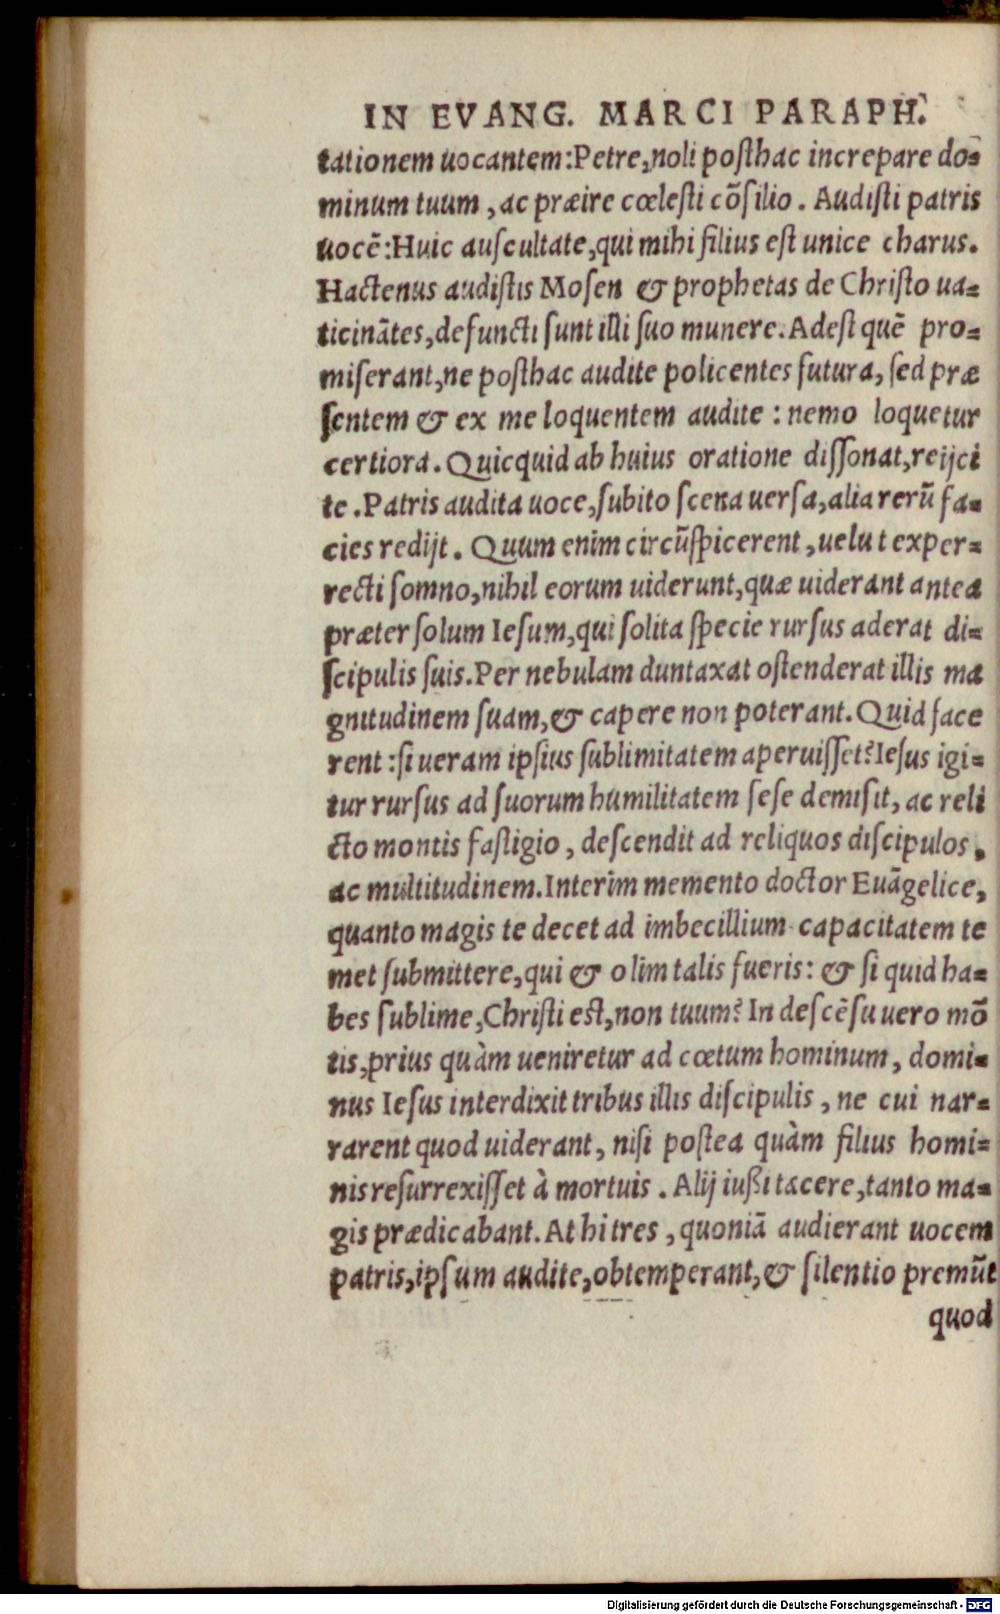 IN EVANG. MARCI PARAPH.
tationem uocantem: Petre, noli posthac increpare do=
minum tuum, ac præire cœlesti cõsilio. Audisti patris
uocẽ: Huic auscultate, qui mihi filius est unice charus.
Hactenus audistis Mosen & prophetas de Christo ua=
ticinãtes, defuncti sunt illi suo munere. Adest quẽ pro=
miserant, ne posthac audite policentes futura, sed præ
sentem & ex me loquentem audite: nemo loquetur
certiora. Quicquid ab huius oratione dissonat, reijci
te. Patris audita uoce, subito scena uersa, alia rerũ fa=
cies redijt. Quum enim circũspicerent, uelut exper=
recti somno, nihil eorum uiderunt, quæ uiderant antea
præter solum Iesum, qui solita specie rursus aderat di=
scipulis suis. Per nebulam duntaxat ostenderat illis ma
gnitudinem suam, & capere non poterant. Quid face
rent: si ueram ipsius sublimitatem aperuisset? Iesus igi=
tur rursus ad suorum humilitatem sese demisit, ac reli
cto montis fastigio, descendit ad reliquos discipulos,
ac multitudinem. Interim memento doctor Euãgelice,
quanto magis te decet ad imbecillium capacitatem te
met submittere, qui & olim talis fueris: & si quid ha=
bes sublime, Christi est, non tuum? In descẽsu uero mõ
tis, prius quàm ueniretur ad cœtum hominum, domi=
nus Iesus interdixit tribus illis discipulis, ne cui nar=
rarent quod uiderant, nisi postea quàm filius homi=
nis resurrexisset à mortuis. Alij iußi tacere, tanto ma=
gis prædicabant. At hi tres, quoniã audierant uocem
patris, ipsum audite, obtemperant, & silentio premũt
quod
Digitalisierung gefördert durch die Deutsche Forschungsgemeinschaft - DFG